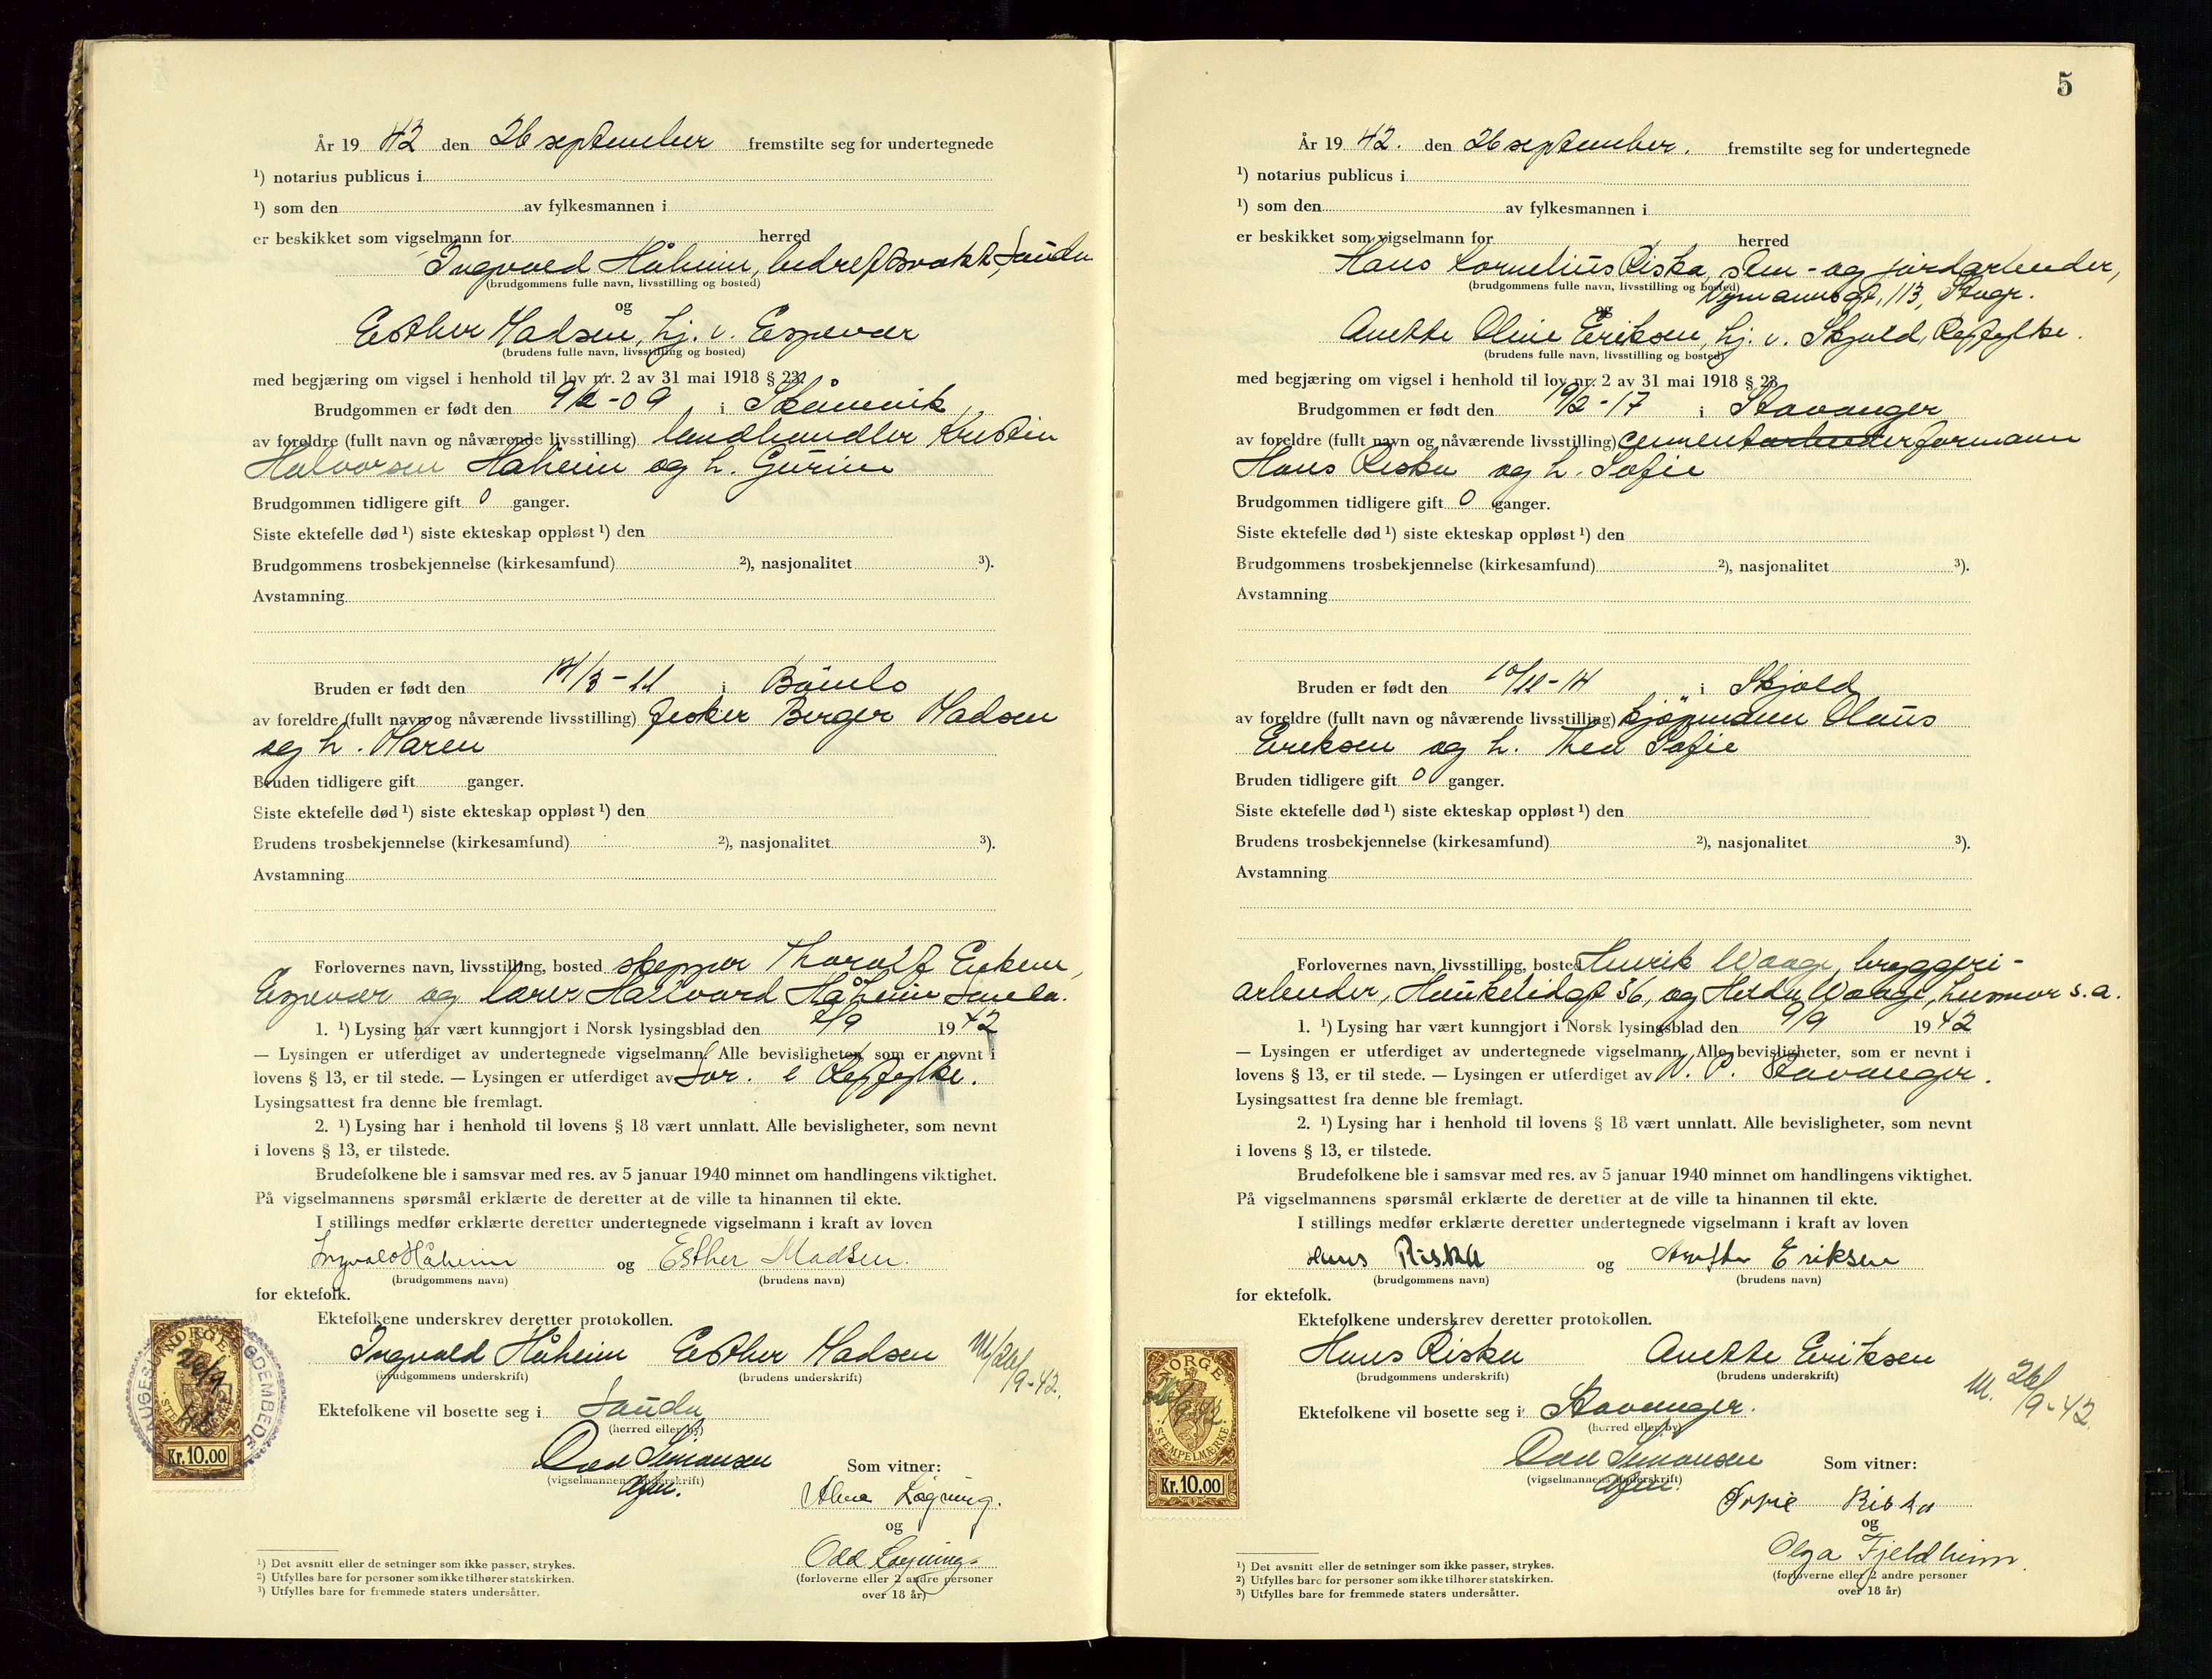 År 19 42 den 26 september fremstilte seg for undertegnede
¹) notarius publicus i
¹) som den av fylkesmannen i
er beskikket som vigselmann for herred
Ingvald Håheim, Sauda
(brudgommens fulle navn, livsstilling og bosted)
og
Esther Madsen, hj. v. Espevær
(brudens fulle navn, livsstilling og bosted)
med begjæring om vigsel i henhold til lov nr. 2 av 31 mai 1918 § 23.
Brudgommen er født den 9/2-09 i Skånevik
av foreldre (fullt navn og nåværende livsstilling) landhandler Kristen
Halvorsen Håheim og h. Gurine
Brudgommen tidligere gift 0 ganger.
Siste ektefelle død ¹) siste ekteskap oppløst ¹) den
Brudgommens trosbekjennelse (kirkesamfund) ²), nasjonalitet ³).
Avstamning
Bruden er født den 14/3-11 i Bömlo
av foreldre (fullt navn og nåværende livsstilling) fisker Berger Madsen
og h. Maren
Bruden tidligere gift ganger.
Siste ektefelle død ¹) siste ekteskap oppløst ¹) den
Brudens trosbekjennelse (kirkesamfund) ²), nasjonalitet ³).
Avstamning
Forlovernes navn, livsstilling, bosted skipper Thorolf
Espevær og lærer Halvard Håheim Sauda.
1. ¹) Lysing har vært kunngjort i Norsk lysingsblad den /9 19 42
— Lysingen er utferdiget av undertegnede vigselmann. Alle bevisligheter, som er nevnt i
lovens § 13, er til stede. — Lysingen er utferdiget av Sor. i Ryfylke.
Lysingsattest fra denne ble fremlagt.
2. ¹) Lysing har i henhold til lovens § 18 vært unnlatt. Alle bevisligheter, som nevnt
i lovens § 13, er tilstede.
Brudefolkene ble i samsvar med res. av 5 januar 1940 minnet om handlingens viktighet.
På vigselmannens spørsmål erklærte de deretter at de ville ta hinannen til ekte.
I stillings medfør erklærte deretter undertegnede vigselmann i kraft av loven
Ingvald Håheim og Esther Madsen.
(brudgommens navn) (brudens navn)
for ektefolk.
Ektefolkene underskrev deretter protokollen.
Ingvald Håheim Esther Madsen
(brudgommens underskrift) (brudens underskrift)
M/26/9-42.
Ektefolkene vil bosette seg i Sauda
(herred eller by)
Simonsen
(vigselmannens underskrift)
Som vitner:
Løgning.
og
Odd Løgning
(forloverne eller 2 andre personer
over 18 år)
NORGE
26/9
STEMPELMERKE
Kr.10.00
¹) Det avsnitt eller de setninger som ikke passer, strykes.
²) Utfylles bare for personer som ikke tilhører statskirken.
³) Utfylles bare for fremmede staters undersåtter.
5
År 19 42. den 26 september. fremstilte seg for undertegnede
¹) notarius publicus i
¹) som den av fylkesmannen i
er beskikket som vigselmann for herred
Hans Kornelius Riska, sten- og jordarbeider,
(brudgommens fulle navn, livsstilling og bosted)
113, Stvgr.
og
Anette Oline Eriksen, hj. v. Skjold, Ryfylke.
(brudens fulle navn, livsstilling og bosted)
med begjæring om vigsel i henhold til lov nr. 2 av 31 mai 1918 § 23
Brudgommen er født den 19/2-17 i Stavanger
av foreldre (fullt navn og nåværende livsstilling) cementarbeiderformann
Hans Riska og h. Sofie
Brudgommen tidligere gift 0 ganger.
Siste ektefelle død ¹) siste ekteskap oppløst ¹) den
Brudgommens trosbekjennelse (kirkesamfund) ²), nasjonalitet ³).
Avstamning
Bruden er født den 10/12-14 i Skjold
av foreldre (fullt navn og nåværende livsstilling) kjöpmann Olaus
Eriksen og h. Thea Sofie
Bruden tidligere gift 0 ganger.
Siste ektefelle død ¹) siste ekteskap oppløst ¹) den
Brudens trosbekjennelse (kirkesamfund) ²), nasjonalitet ³).
Avstamning
Forlovernes navn, livsstilling, bosted Henrik Waage, bryggeri-
arbeider, Haukelidgt 36, og Waage, husmor s.a.
1. ¹) Lysing har vært kunngjort i Norsk lysingsblad den 9/9 19 42
— Lysingen er utferdiget av undertegnede vigselmann. Alle bevisligheter, som er nevnt i
lovens § 13, er til stede. — Lysingen er utferdiget av N. P. Stavanger.
Lysingsattest fra denne ble fremlagt.
2. ¹) Lysing har i henhold til lovens § 18 vært unnlatt. Alle bevisligheter, som nevnt
i lovens § 13, er tilstede.
Brudefolkene ble i samsvar med res. av 5 januar 1940 minnet om handlingens viktighet.
På vigselmannens spørsmål erklærte de deretter at de ville ta hinannen til ekte.
I stillings medfør erklærte deretter undertegnede vigselmann i kraft av loven
Hans Riska og Anette Eriksen
(brudgommens navn) (brudens navn)
for ektefolk.
Ektefolkene underskrev deretter protokollen.
Hans Riska Anette Eriksen
(brudgommens underskrift) (brudens underskrift)
M. 26/9-42.
Ektefolkene vil bosette seg i Stavanger.
(herred eller by)
Simonsen
(vigselmannens underskrift)
Som vitner:
Sofie Riska
og
Olga Fjeldheim
(forloverne eller 2 andre personer
over 18 år)
NORGE
26/9-42
STEMPELMERKE
Kr.10.00
¹) Det avsnitt eller de setninger som ikke passer, strykes.
²) Utfylles bare for personer som ikke tilhører statskirken.
³) Utfylles bare for fremmede staters undersåtter.